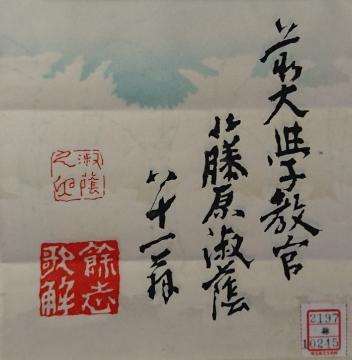 大学教官
藤原淑蔭
八十一翁
淑蔭
之印
餘志
歌解
2197
10245